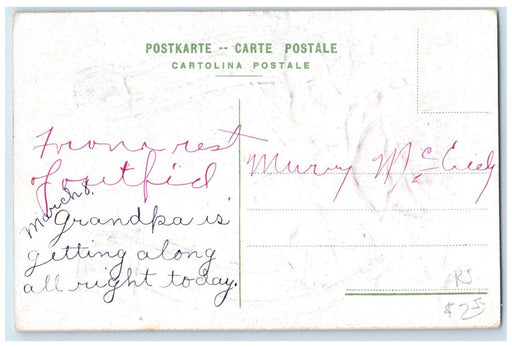 POSTKARTE -- CARTE POSTALE
CARTOLINA POSTALE
From a rest
of outfid.
Murry
March 8.
Grandpa is
getting along
all right today.
RJ
$25